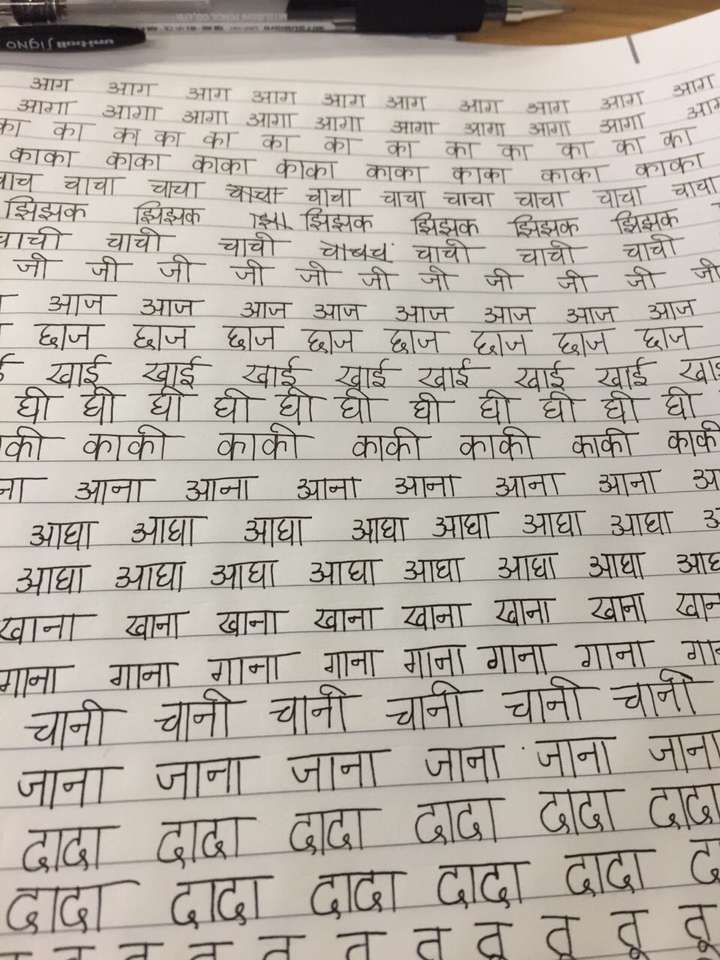 uni-ball SIGNO
आग आग आग आग आग आग आग आग आग आग
आगा आगा आगा आगा आगा आगा आगा आगा आगा
का का का का का का का का का का का का
काका काका काका काका काका काका काका काका
चाचा चाचा चाचा चाचा चाचा चाचा चाचा चाचा
झिझक झिझक झिझक झिझक झिझक झिझक
चाची चाची चाची चाची चाची चाची
जी जी जी जी जी जी जी जी जी जी जी
आज आज आज आज आज आज आज आज
छाज छाज छाज छाज छाज छाज छाज छाज
खाई खाई खाई खाई खाई खाई खाई
घी घी घी घी घी घी घी घी घी घी घी
काकी काकी काकी काकी काकी काकी
आना आना आना आना आना आना
आधा आधा आधा आधा आधा आधा आधा
आधा आधा आधा आधा आधा आधा आधा
खाना खाना खाना खाना खाना खाना खाना
गाना गाना गाना गाना गाना गाना गाना
चानी चानी चानी चानी चानी चानी
जाना जाना जाना जाना जाना जाना
दादा दादा दादा दादा दादा दादा
दादा दादा दादा दादा दादा
तू तू तू तू